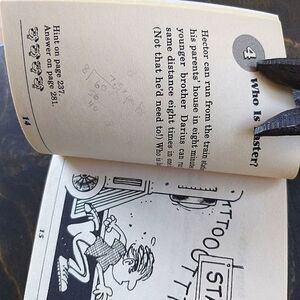 4
Who Is Faster?
Hector can run from the train
his parents' house in eight
younger brother Darius can
same distance eight times in
(Not that he'd need to!) Who is
Hint on page 237.
Answer on page 281.
14
TTOO
STA
15